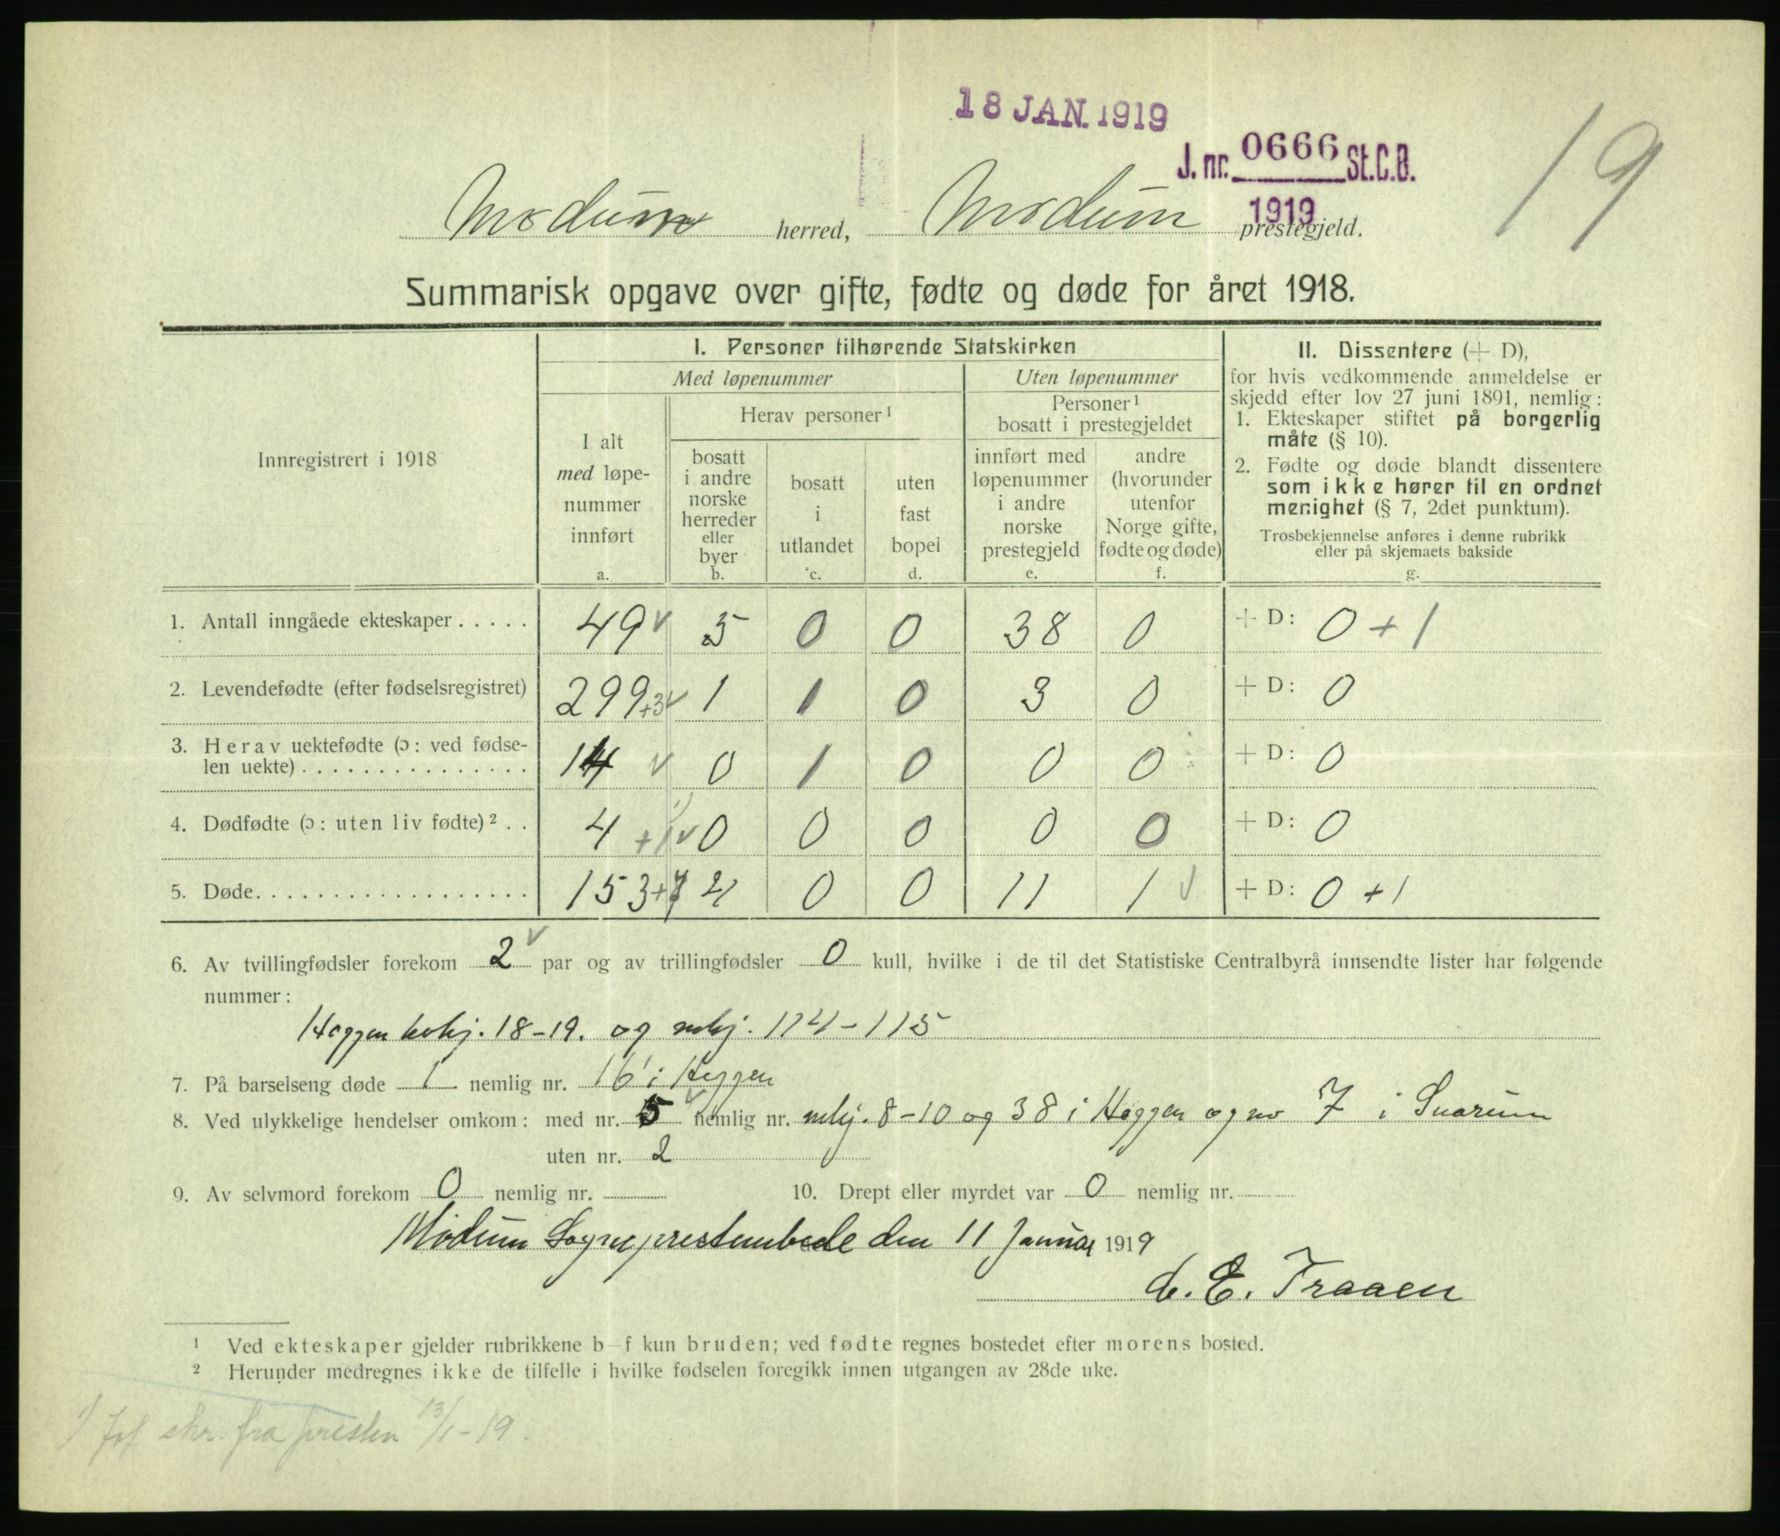 18 JAN. 1919
J. nr. 0666 St.C.B.
1919
19
Modum herred, Modum prestegjeld.
Summarisk opgave over gifte, fødte og døde for året 1918.
Innregistrert i 1918
I. Personer tilhørende Statskirken
Med løpenummer
Uten løpenummer
I alt
med løpe-
nummer
innført
a.
Herav personer¹
bosatt
i andre
norske
herreder
eller
byer
b.
bosatt
i
utlandet
c.
uten
fast
bopel
d.
Personer¹
bosatt i prestegjeldet
innført med
løpenummer
i andre
norske
prestegjeld
e.
andre
(hvorunder
utenfor
Norge gifte,
fødte og døde)
f.
II. Dissentere (+ D),
for hvis vedkommende anmeldelse er
skjedd efter lov 27 juni 1891, nemlig:
1. Ekteskaper stiftet på borgerlig
måte (§ 10).
2. Fødte og døde blandt dissentere
som ikke hører til en ordnet
menighet (§ 7, 2det punktum).
Trosbekjennelse anføres i denne rubrikk
eller på skjemaets bakside
g.
1. Antall inngåede ekteskaper . . . . . 49 ✓ 5 0 0 38 0 + D: 0 + 1
2. Levendefødte (efter fødselsregistret) 299 +3 ✓ 1 1 0 3 0 + D: 0
3. Herav uektefødte (ɔ: ved fødse-
len uekte) . . . . . . . . . . . . . . . 14 ✓ 0 1 0 0 0 + D: 0
4. Dødfødte (ɔ: uten liv fødte)² . . 4 +1 ✓ 0 0 0 0 0 + D: 0
5. Døde. . . . . . . . . . . . . . . . . . 153 + 4 0 0 11 1 ✓ + D: 0 + 1
6. Av tvillingfødsler forekom 2 ✓ par og av trillingfødsler 0 kull, hvilke i de til det Statistiske Centralbyrå innsendte lister har følgende
nummer:
Heggen kvkj. 18-19. og mkj. 114-115
7. På barselseng døde 1 nemlig nr. 16 i Heggen
8. Ved ulykkelige hendelser omkom: med nr. 5 ✓ nemlig nr. mkj. 8-10 og 38 i Heggen og no 7 i Snarum
uten nr. 2
9. Av selvmord forekom 0 nemlig nr.
10. Drept eller myrdet var 0 nemlig nr.
Modum Sogneprestembede den 11 Januar 1919
C. E. Traaen
¹ Ved ekteskaper gjelder rubrikkene b—f kun bruden; ved fødte regnes bostedet efter morens bosted.
² Herunder medregnes ikke de tilfelle i hvilke fødselen foregikk innen utgangen av 28de uke.
1) Jvf. skr. fra presten 13/1-19.